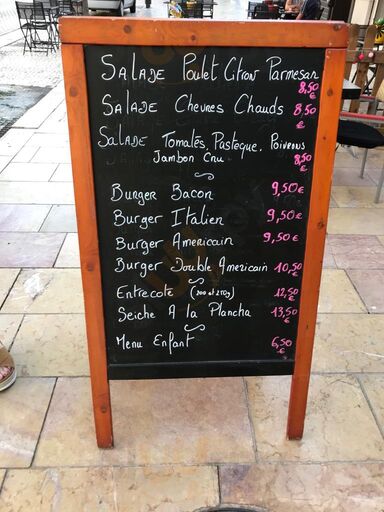 Salade Poulet Citron Parmesan 8,50 €
Salade Chevres Chauds 8,50 €
Salade Tomates, Pasteque, Poivrons
Jambon Cru 8,50 €
Burger Bacon 9,50 €
Burger Italien 9,50 €
Burger Americain 9,50 €
Burger Double Americain 10,50 €
Entrecote (200 et 250g) 12,50 €
Seiche A la Plancha 13,50 €
Menu Enfant 6,50 €